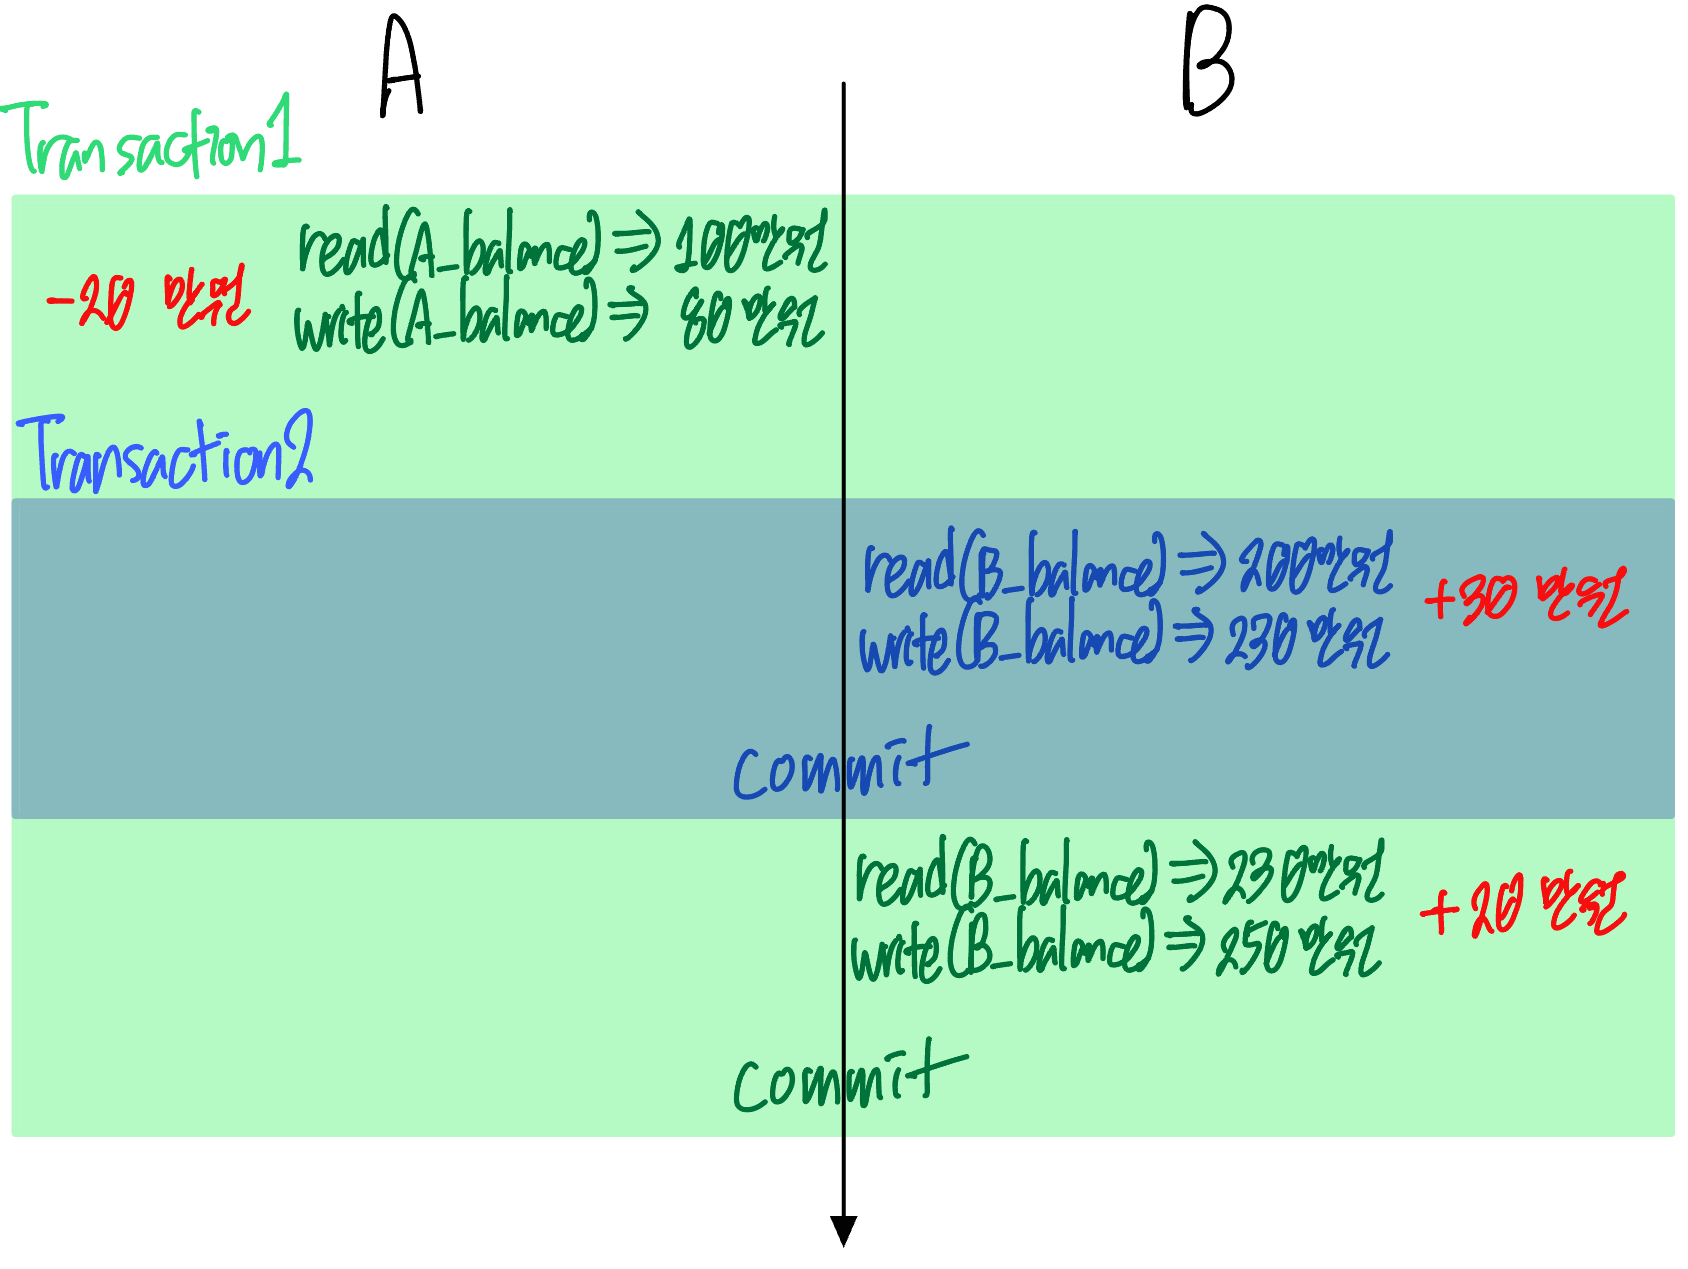 A
B
Transaction1
read(A_balance) ⇒ 100만원
-20 만원
write(A_balance) ⇒ 80 만원
Transaction2
read(B_balance) ⇒ 200만원
+30 만원
write(B_balance) ⇒ 230 만원
commit
read(B_balance) ⇒ 230만원
+20 만원
write(B_balance) ⇒ 250 만원
commit